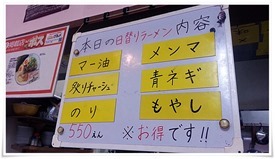 本日の日替りラーメン内容
マー油 メンマ
炙りチャーシュー 青ネギ
のり もやし
550えん ※お得です!!